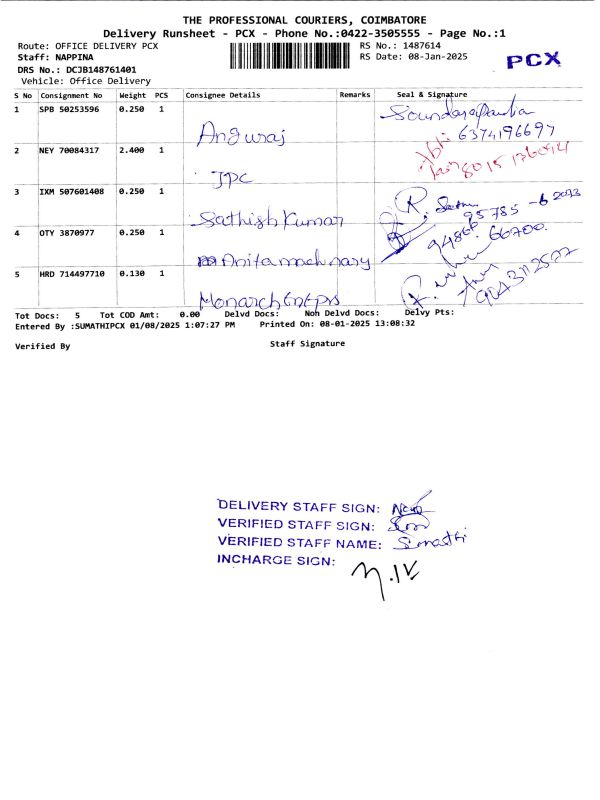 THE PROFESSIONAL COURIERS, COIMBATORE
Delivery Runsheet - PCX - Phone No.:0422-3505555 - Page No.:1
Route: OFFICE DELIVERY PCX
RS No.: 1487614
Staff: NAPPINA
RS Date: 08-Jan-2025
PCX
DRS No.: DCJB148761401
Vehicle: Office Delivery
S No Consignment No Weight PCS Consignee Details Remarks Seal & Signature
1 SPB 50253596 0.250 1 Anguraj
6374196697
2 NEY 70084317 2.400 1 JPC
3 IXM 507601408 0.250 1 Sathish Kumar
95785
4 OTY 3870977 0.250 1 Anitamachinary
94866 66700.
5 HRD 714497710 0.130 1 Monarch
Tot Docs: 5 Tot COD Amt: 0.00 Delvd Docs: Non Delvd Docs: Delvy Pts:
Entered By :SUMATHIPCX 01/08/2025 1:07:27 PM Printed On: 08-01-2025 13:08:32
Verified By Staff Signature
DELIVERY STAFF SIGN:
VERIFIED STAFF SIGN:
VERIFIED STAFF NAME: Sumathi
INCHARGE SIGN: